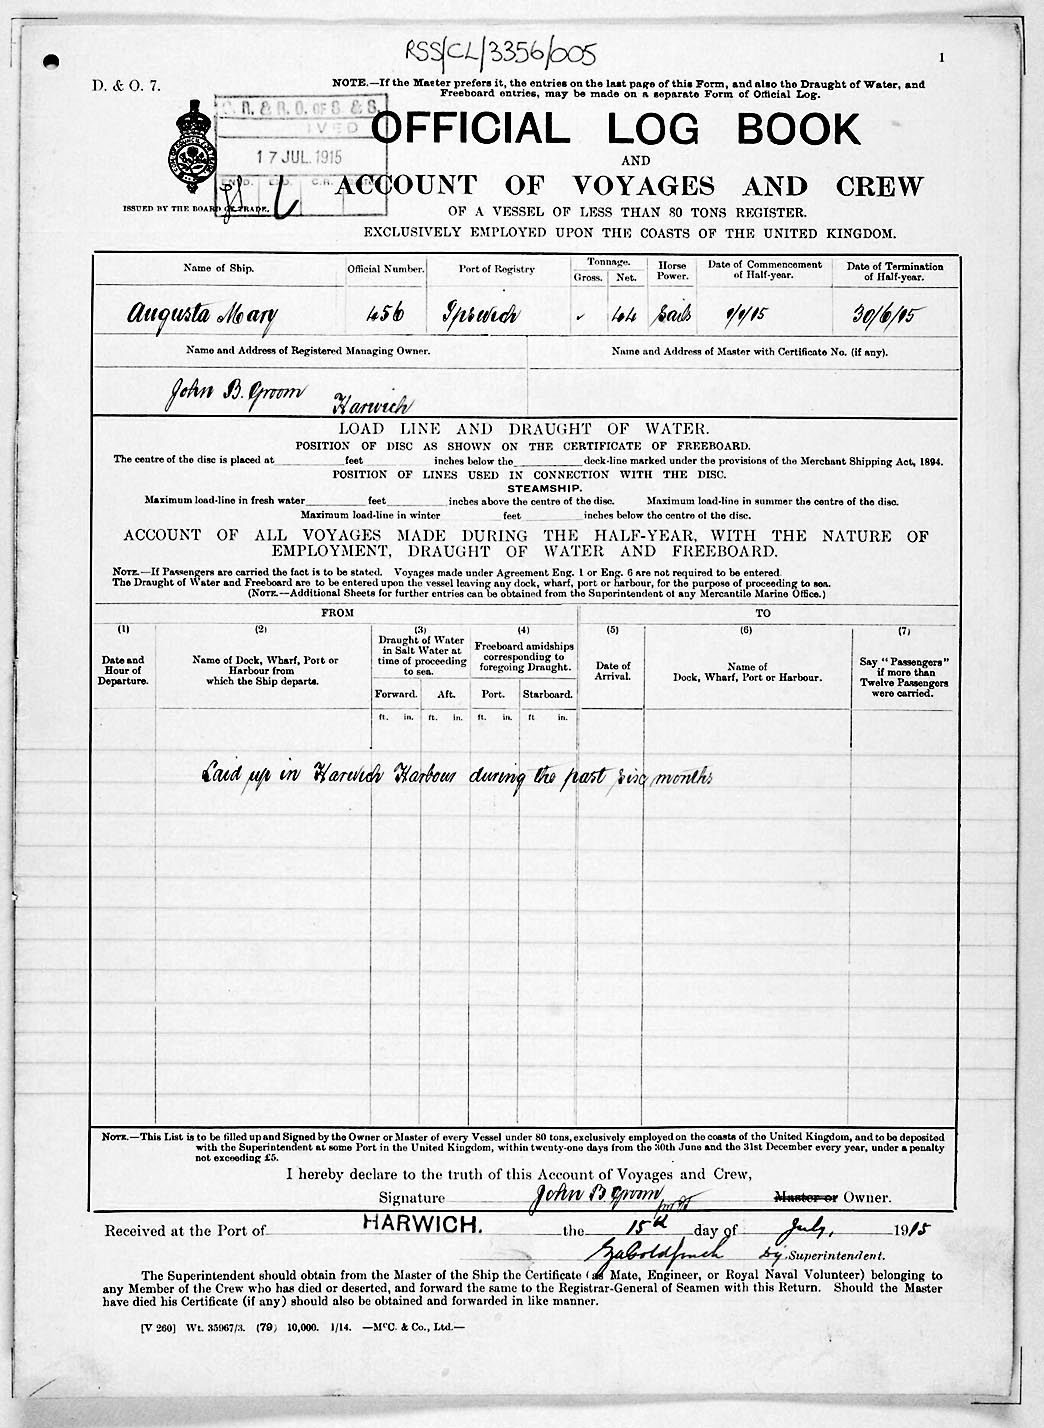 RSS/CL/3356/005
1
D. & O. 7.
NOTE.—If the Master prefers it, the entries on the last page of this Form, and also the Draught of Water, and
Freeboard entries, may be made on a separate Form of Official Log.
OF S. & S.
17 JUL. 1915
OFFICIAL LOG BOOK
AND
ACCOUNT OF VOYAGES AND CREW
ISSUED BY THE BOARD OF TRADE.
OF A VESSEL OF LESS THAN 80 TONS REGISTER.
EXCLUSIVELY EMPLOYED UPON THE COASTS OF THE UNITED KINGDOM.
Name of Ship. Official Number. Port of Registry Tonnage. Gross. Net. Horse Power. Date of Commencement of Half-year. Date of Termination of Half-year.
Augusta Mary 456 Ipswich 44 Sails 1/1/15 30/6/15
Name and Address of Registered Managing Owner. Name and Address of Master with Certificate No. (if any).
John B. Groom Harwich
LOAD LINE AND DRAUGHT OF WATER.
POSITION OF DISC AS SHOWN ON THE CERTIFICATE OF FREEBOARD.
The centre of the disc is placed at feet inches below the deck-line marked under the provisions of the Merchant Shipping Act, 1894.
POSITION OF LINES USED IN CONNECTION WITH THE DISC.
STEAMSHIP.
Maximum load-line in fresh water feet inches above the centre of the disc. Maximum load-line in summer the centre of the disc.
Maximum load-line in winter feet inches below the centre of the disc.
ACCOUNT OF ALL VOYAGES MADE DURING THE HALF-YEAR, WITH THE NATURE OF
EMPLOYMENT, DRAUGHT OF WATER AND FREEBOARD.
NOTE.—If Passengers are carried the fact is to be stated. Voyages made under Agreement Eng. 1 or Eng. 6 are not required to be entered.
The Draught of Water and Freeboard are to be entered upon the vessel leaving any dock, wharf, port or harbour, for the purpose of proceeding to sea.
(NOTE.—Additional Sheets for further entries can be obtained from the Superintendent of any Mercantile Marine Office.)
FROM TO
(1) (2) (3) (4) (5) (6) (7)
Date and Hour of Departure.
Name of Dock, Wharf, Port or Harbour from which the Ship departs.
Draught of Water in Salt Water at time of proceeding to sea.
Freeboard amidships corresponding to foregoing Draught.
Date of Arrival.
Name of Dock, Wharf, Port or Harbour.
Say "Passengers" if more than Twelve Passengers were carried.
Forward. Aft. Port. Starboard.
ft. in. ft. in. ft. in. ft in.
Laid up in Harwich Harbour during the past six months
NOTE.—This List is to be filled up and Signed by the Owner or Master of every Vessel under 80 tons, exclusively employed on the coasts of the United Kingdom, and to be deposited
with the Superintendent at some Port in the United Kingdom, within twenty-one days from the 30th June and the 31st December every year, under a penalty
not exceeding £5.
I hereby declare to the truth of this Account of Voyages and Crew,
Signature John B Groom Master or Owner.
Received at the Port of HARWICH. the 15th day of July, 1915
Dy. Superintendent.
The Superintendent should obtain from the Master of the Ship the Certificate (as Mate, Engineer, or Royal Naval Volunteer) belonging to
any Member of the Crew who has died or deserted, and forward the same to the Registrar-General of Seamen with this Return. Should the Master
have died his Certificate (if any) should also be obtained and forwarded in like manner.
[V 260] Wt. 35967/3. (79) 10,000. 1/14. —McC. & Co., Ltd.—